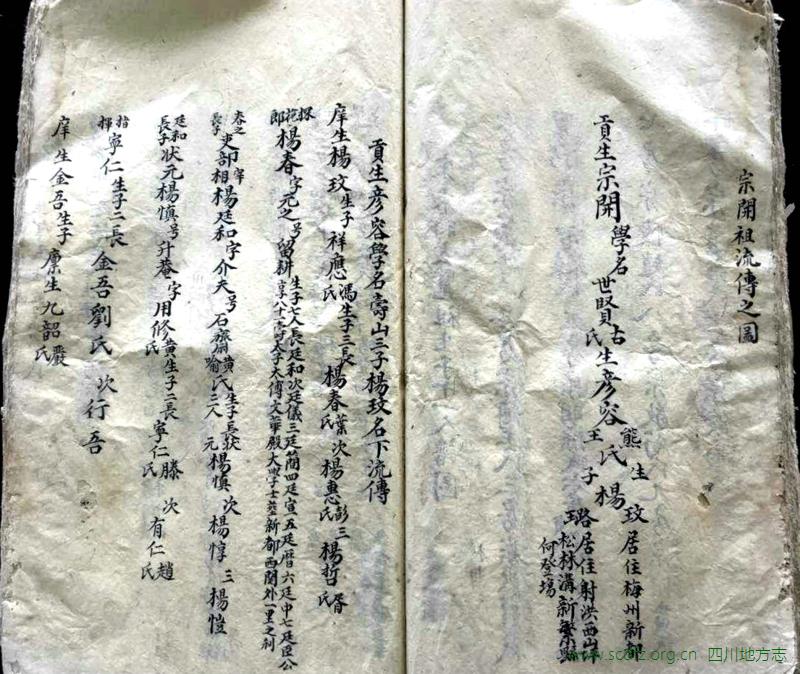 宗開祖流傳之圖
貢生宗開學名世賢古氏生彥容熊氏王氏生子楊玟居住梅州新都
路居住射洪西山坪
玉松林溝新繁縣何登場
貢生彥容學名壽山三子楊玟名下流傳
庠生楊玟生子祥應馮氏生子三長楊春葉氏次楊惠彭氏三楊哲胥氏
探花郎楊春字元之號留耕生子七人長廷和次廷儀三廷簡四廷宣五廷曆六廷中七廷臣公享八十二壽太子太傅文華殿大學士葬新都西関外一里之利
春之長子吏部宰相楊廷和字介夫號石齋黃氏喻氏二人生子長狀元楊慎次楊惇三楊愷
廷和長子狀元楊慎號升菴字用修黃氏生子二長寧仁滕氏次有仁趙氏
指揮寧仁生子二長金吾劉氏次行吾
庠生金吾生子庠生九韶嚴氏
www.scdfz.org.cn 四川地方志